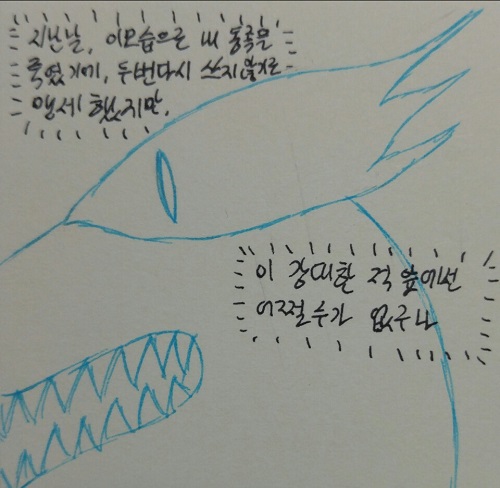 지난날, 이모습으로 내 동족을
죽였기에, 두번다시 쓰지않기로
맹세 했지만,
이 강대한 적 앞에선
어쩔수가 없구나